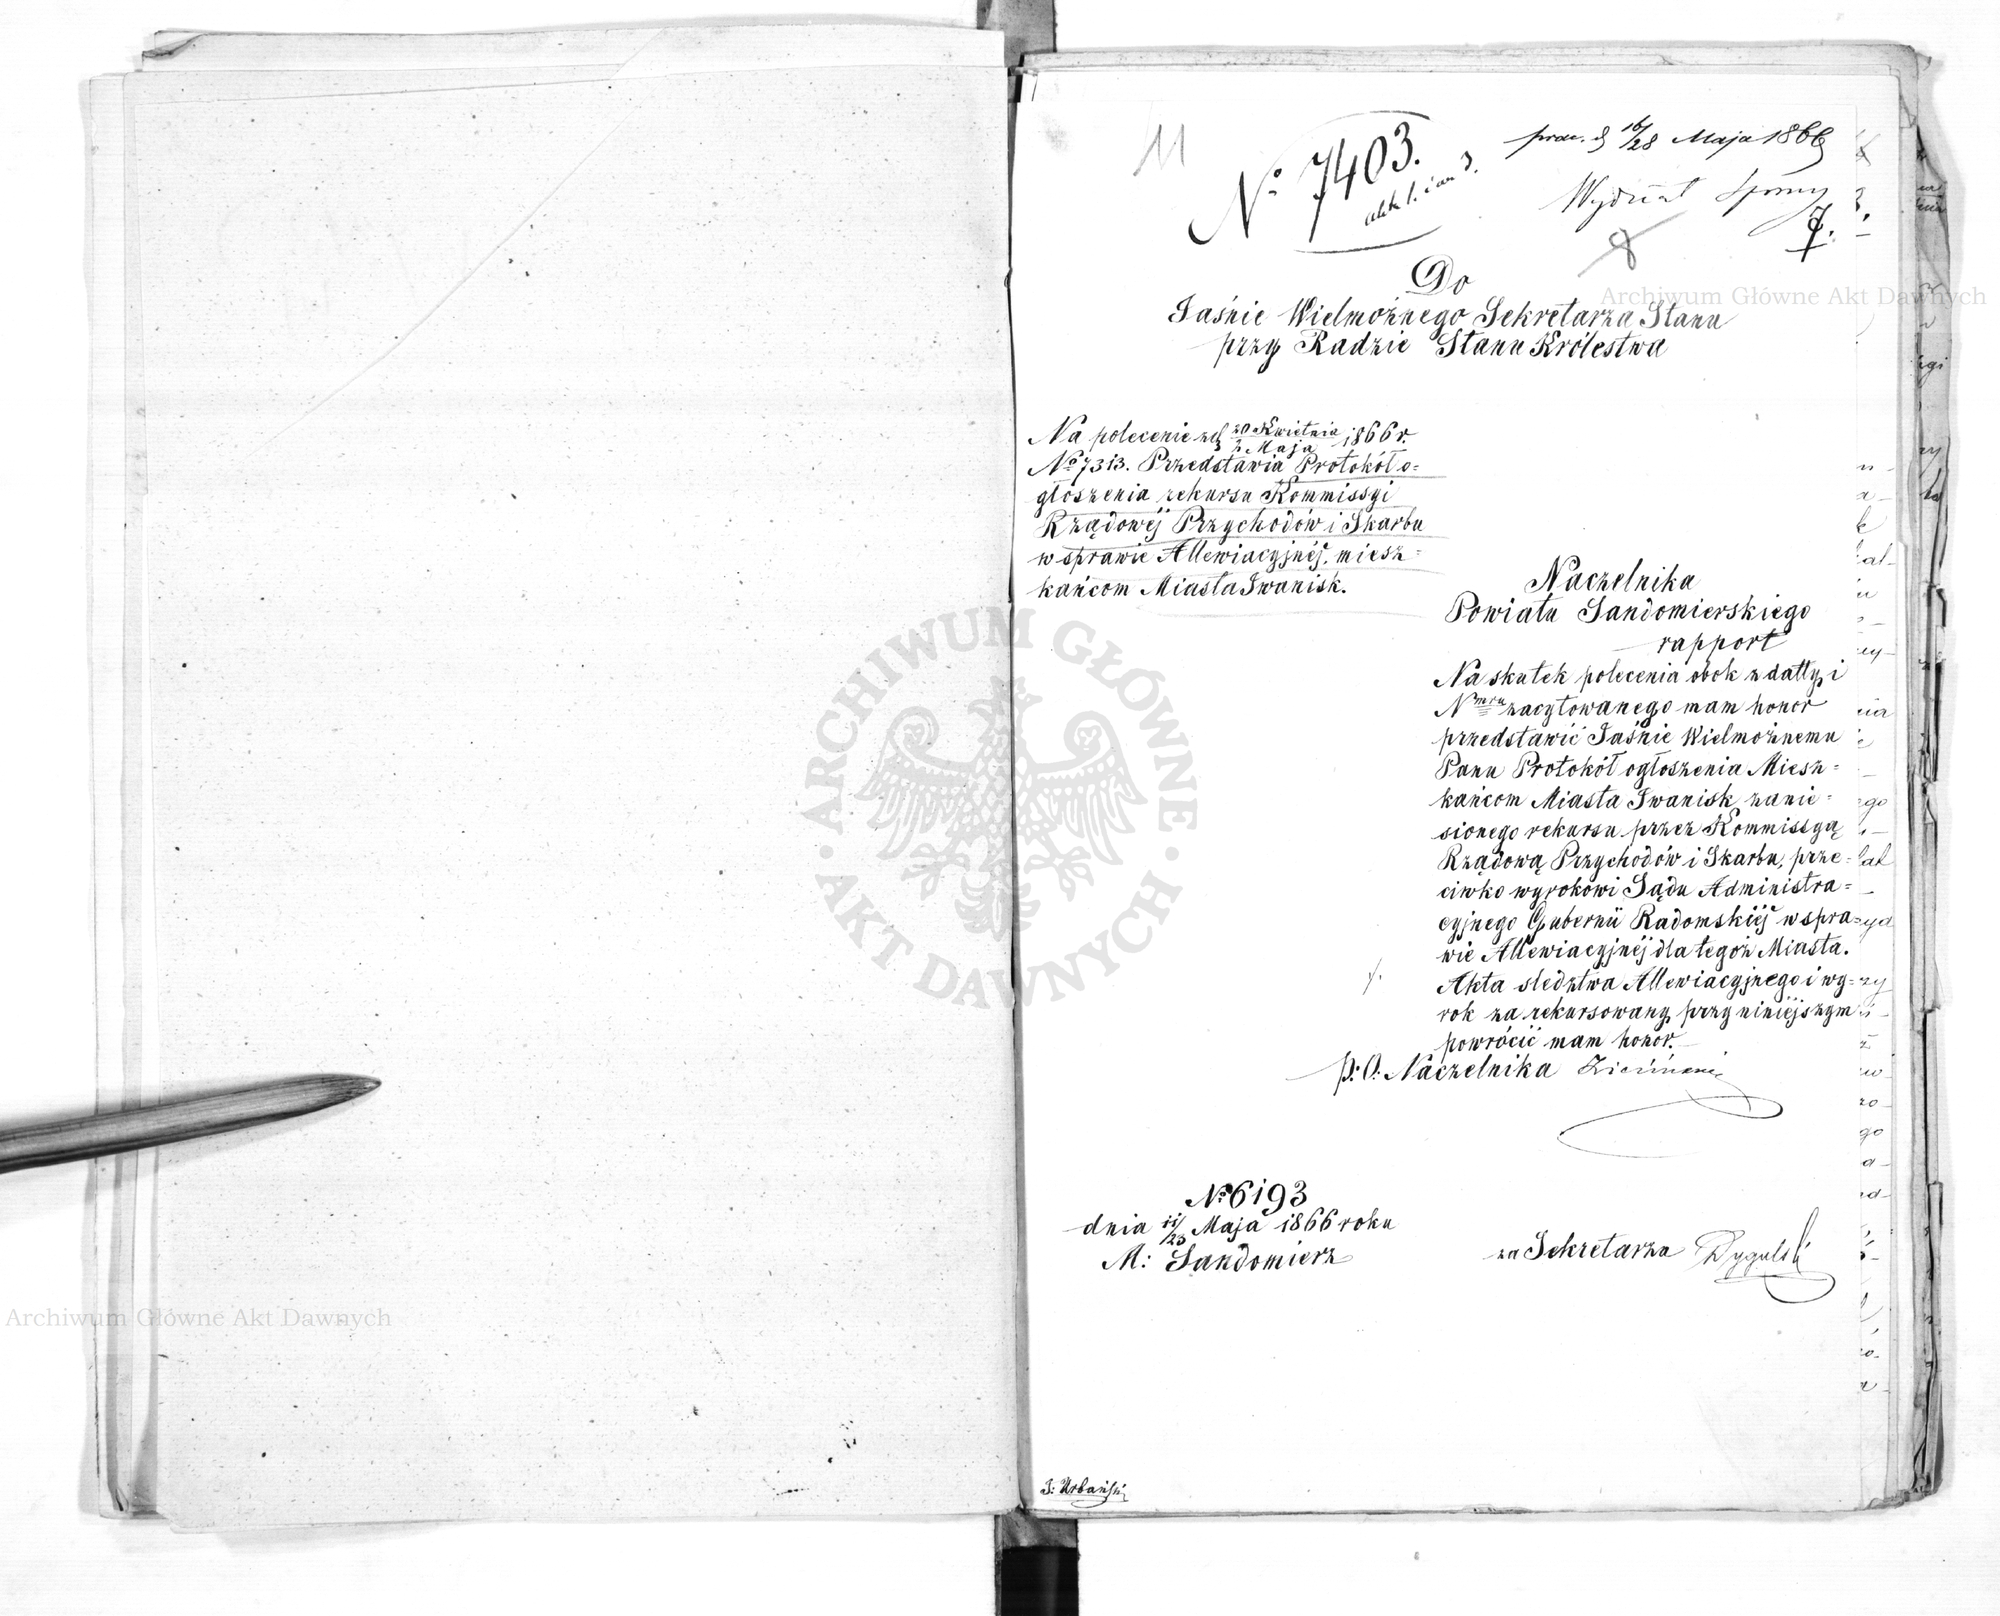 11
№ 7403.
prez. d 16/28 Maja 1866
Wydział Sporny
7.
Do
Jaśnie Wielmożnego Sekretarza Stanu
przy Radzie Stanu Królestwa
Na polecenie z d 20 Kwietnia / 2 Maja 1866 r.
№ 7313. Przedstawia Protokół o=
głoszenia rekursu Kommissyi
Rządowéj Przychodów i Skarbu
w sprawie Allewiacyjnéj, miesz=
kańcom Miasta Iwanisk.
Naczelnika
Powiatu Sandomierskiego
rapport
Na skutek polecenia obok z datty i
Nmru zacytowanego mam honor
przedstawić Jaśnie Wielmożnemu
Panu Protokół ogłoszenia Miesz=
kańcom Miasta Iwanisk zanie=
sionego rekursu przez Kommissyą
Rządową Przychodów i Skarbu, prze=
ciwko wyrokowi Sądu Administra=
cyjnego Gubernii Radomskiéj w spra=
wie Allewiacyjnéj dla tegoż Miasta.
Akta śledztwa Allewiacyjnego i wy=
rok zarekursowany przy niniéjszym
powrócić mam honor.
p: O: Naczelnika
№ 6193
dnia 11/23 Maja 1866 roku
M: Sandomierz
za Sekretarza Dygulski
J: Urbański
Archiwum Główne Akt Dawnych
Archiwum Główne Akt Dawnych
ARCHIWUM GŁÓWNE
AKT DAWNYCH